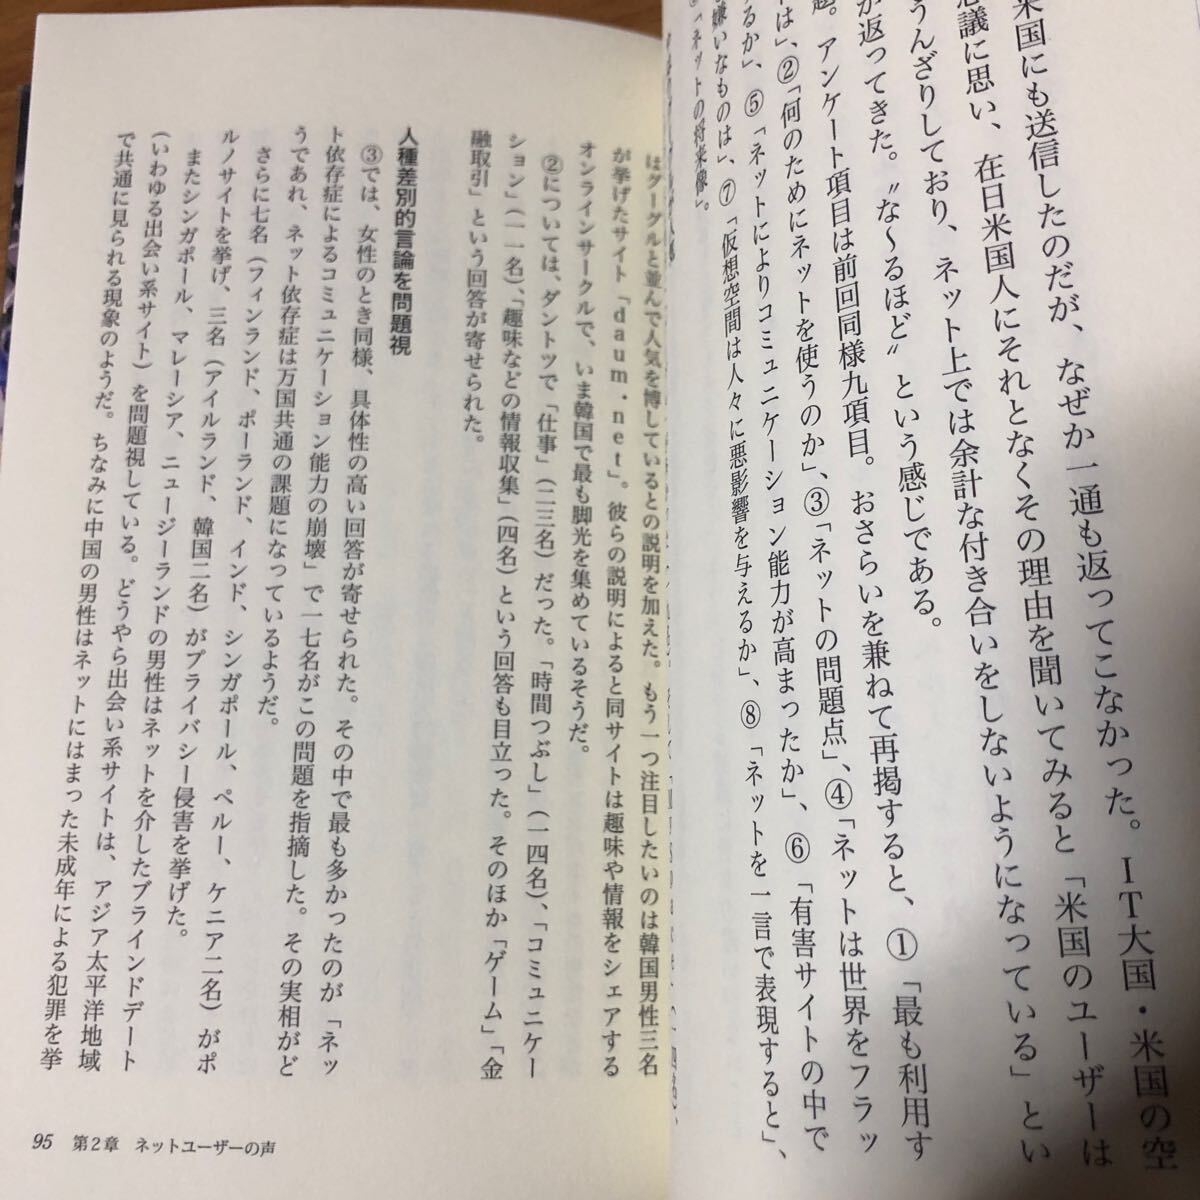 米国にも送信したのだが、なぜか一通も返ってこなかった。IT大国・米国の空
思議に思い、在日米国人にそれとなくその理由を聞いてみると「米国のユーザーは
うんざりしており、ネット上では余計な付き合いをしないようになっている」とい
が返ってきた。〝な〜るほど〟という感じである。
題。アンケート項目は前回同様九項目。おさらいを兼ねて再掲すると、①「最も利用す
は」、②「何のためにネットを使うのか」、③「ネットの問題点」、④「ネットは世界をフラッ
るか」、⑤「ネットによりコミュニケーション能力が高まったか」、⑥「有害サイトの中で
嫌いなものは」、⑦「仮想空間は人々に悪影響を与えるか」、⑧「ネットを一言で表現すると」、
「ネットの将来像」。
はグーグルと並んで人気を博しているとの説明を加えた。もう一つ注目したいのは韓国男性三名
が挙げたサイト「daum.net」。彼らの説明によると同サイトは趣味や情報をシェアする
オンラインサークルで、いま韓国で最も脚光を集めているそうだ。
②については、ダントツで「仕事」（二三名）だった。「時間つぶし」（一四名）、「コミュニケー
ション」（一一名）、「趣味などの情報収集」（四名）という回答も目立った。そのほか「ゲーム」「金
融取引」という回答が寄せられた。
人種差別的言論を問題視
③では、女性のとき同様、具体性の高い回答が寄せられた。その中で最も多かったのが「ネッ
ト依存症によるコミュニケーション能力の崩壊」で一七名がこの問題を指摘した。その実相がど
うであれ、ネット依存症は万国共通の課題になっているようだ。
さらに七名（フィンランド、ポーランド、インド、シンガポール、ペルー、ケニア二名）がポ
ルノサイトを挙げ、三名（アイルランド、韓国二名）がプライバシー侵害を挙げた。
またシンガポール、マレーシア、ニュージーランドの男性はネットを介したブラインドデート
（いわゆる出会い系サイト）を問題視している。どうやら出会い系サイトは、アジア太平洋地域
で共通に見られる現象のようだ。ちなみに中国の男性はネットにはまった未成年による犯罪を挙
95 第2章 ネットユーザーの声